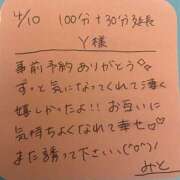 4/10 100分+30分延長
Y様
事前予約ありがとう♡
ずっと気になってくれてて凄く
嬉しかったよ!!お互いに
気持ちよくなれて幸せ♡♡
また誘って下さい＼(^o^)／
みと